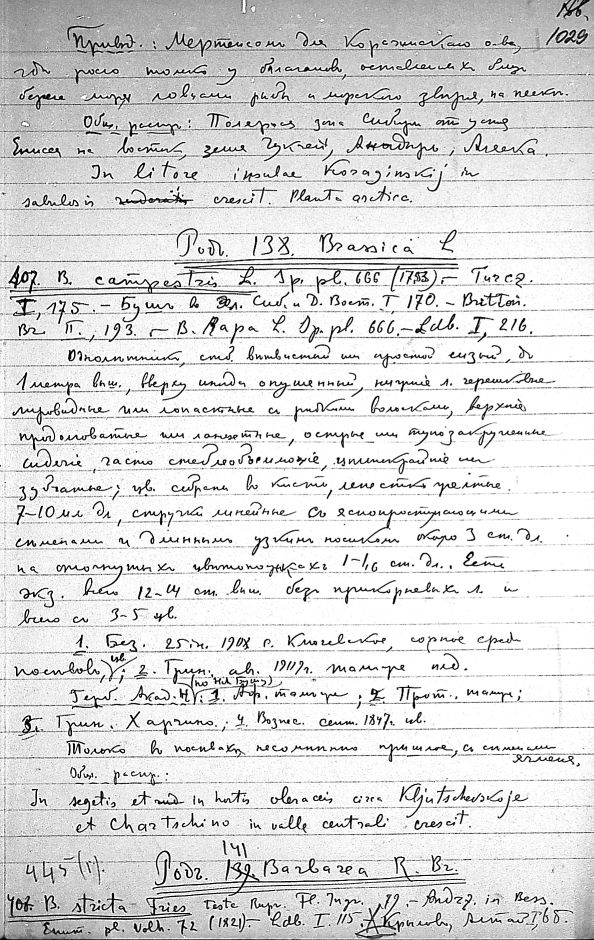 1029
Привод.: Мертенсом для Карагинскаго о-ва,
где росло только у балаганов, оставленных близ
берега моря ловцами рыбы и морского зверя, на песке.
Общ. распр.: Полярная зона Сибири от устья
Енисея на восток, земля Чукчей, Анадырь, Аляска.
In litore insulae Koraginskij in
sabulosis crescit. Planta arctica.
Родъ 138. Brassica L
407. B. campestris L. Sp. pl. 666 (1753). – Turcz.
I, 175. – Буш в Фл. Сиб. и Д. Вост. I 170. – Britton.
Br II., 193. – B. Rapa L. Sp. pl. 666. – Ldb. I, 216.
стеб. ветвистый или простой сизый, до
1 метра выш., вверху иногда опушенный, нижние л. черешковые
лировидные или лопастные с редкими волосками, верхние
продолговатые или ланцетные, острые или тупозакругленные
сидячие, часто стеблеобъемлющие, цельнокрайние или
зубчатые; цв. собраны в кисти, лепестки желтые.
7–10 мл дл, стручки линейные с
семенами и длинным узким носиком около 3 см. дл.
на цветоножках см. дл. Есть
экз. всего 12–14 см. выш. без прикорневых л. и
всего со 3–5 цв.
1. Без. 25 1908 г. Ключевское, сорное среди
посевов, цв.; 2. Грин. ав. 1909 г. там же пл.
Герб. Акад. Н. (по Н.А. Бушу): 1. там же; 2. Прот. там же;
3. Грин. Харчино.; 4. Вознес. сент. 1847. цв.
Только в посевах, несомненно пришлое, с семенами
ячменя.
Общ. распр.:
In segetis et in hortis oleraceis circa Kljutschevskoje
et Chartschino in valle centrali crescit.
141
445(1). Родъ 139 Barbarea R. Br.
408. B. stricta Fries teste Rupr. Fl. Ingr. 79 – Andrz. in Bess.
Enum. pl. Volh. 72 (1821). – Ldb. I. 115. Крылов, Алтай I, 65.